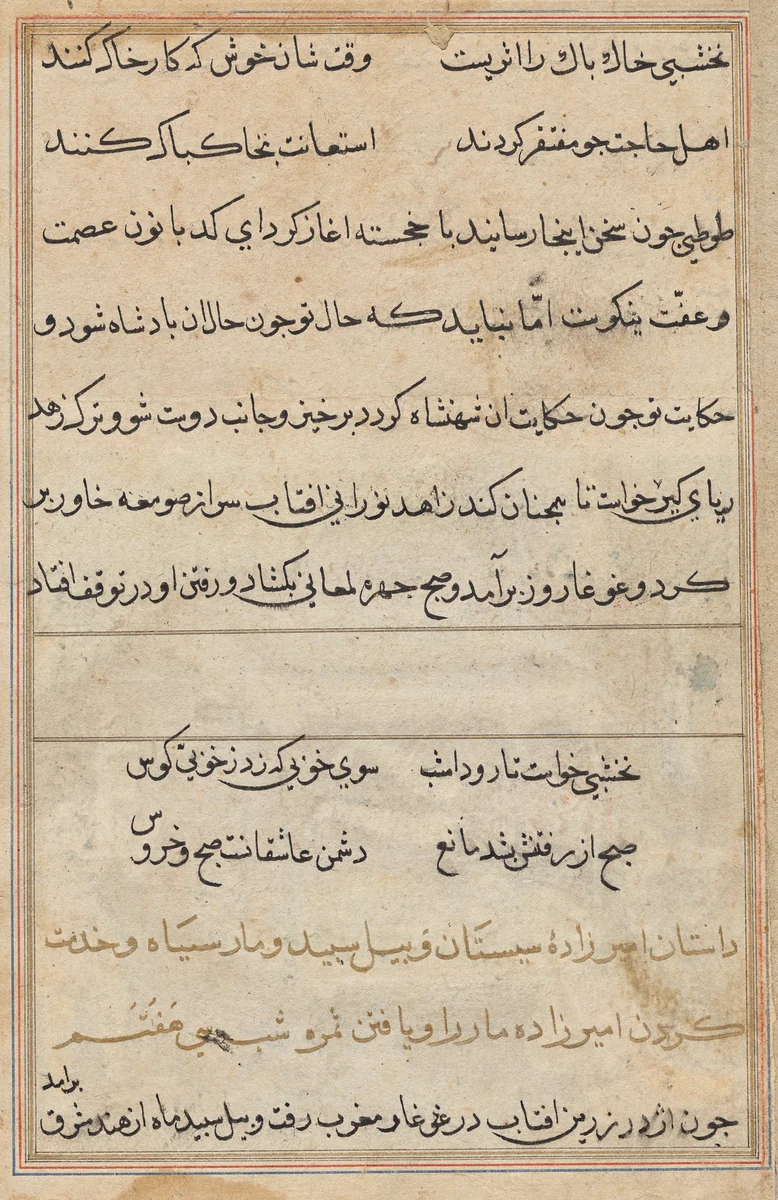 نخشبی خاك باك را اثریست وقت شان خوش که کار خاک کنند
اهل حاجت جو مفتقر کردند استعانت بخاك باک کنند
طوطی جون سخن اینجا رسانید با خجسته اغاز کرد ای کد بانون عصمت
و عفّت نیکوست امّا نباید که حال تو جون حال ان بادشاه شود و
حکایت تو جون حکایت ان شهنشاه کردد برخیز و جانب دوست شو و ترک زهد
ریای کیر خواست تا همجنان کند زاهد نورانی افتاب سر از صومعه خاور بر
کرد و غوغا روز برآمد و صبح جهره لمعانی بکشاد و رفتن او در توقف افتاد
نخشبی خواست تا رود امشب سوی خوبی که زد ز خوبی کوس
صبح از رفتنش بشد مانع دشمن عاشقانست صبح و خروس
داستان امیر زادهٔ سیستان و بیل سبید و مار سیاه و خدمت
کردن امیر زاده مار را و یافتن ثمره شب هفتم
جون اژدر زرین افتاب در غار مغرب رفت و بیل سبید ماه از هند شرق برامد